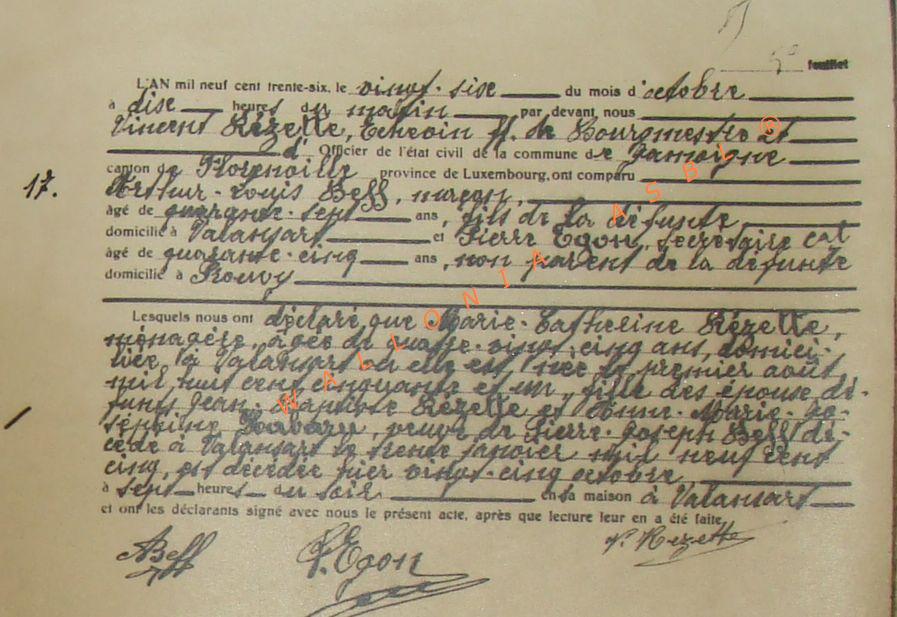 5º feuillet
L'AN mil neuf cent trente-six, le vingt-six du mois d'octobre
à dix heures du matin par devant nous
Vincent Rézette, Echevin ff. de Bourgmestre et
d' Officier de l'état civil de la commune de Jamoigne
canton de Florenville province de Luxembourg, ont comparu
17. Arthur-Louis Beff, maçon,
âgé de quarante-sept ans, fils de la défunte
domicilié à Valansart et Pierre Egon, secrétaire cal
âgé de quarante-cinq ans, non parent de la défunte
domicilié à Rouvoy
Lesquels nous ont déclaré que Marie-Catherine Rézette,
ménagère, âgée de quatre-vingt-cinq ans, domici-
liée à Valansart où elle est née le premier août
mil huit cent cinquante et un, fille des époux dé-
funts Jean-Baptiste Rézette et Anne-Marie-Jo-
séphine, veuve de Pierre-Joseph Beff dé-
cédé à Valansart le trente janvier mil neuf cent
cinq, est décédée hier vingt-cinq octobre
à sept heures du soir en sa maison à Valansart
et ont les déclarants signé avec nous le présent acte, après que lecture leur en a été faite
ABeff
P. Egon
V. Rezette
WALLONIA ASBL ©